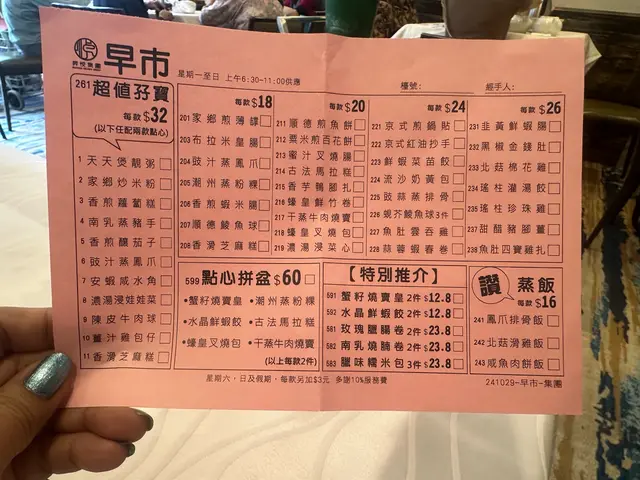 早市
星期一至日 上午6:30-11:00供應
檯號: 經手人:
261 超值孖寶
每款$32
(以下任配兩款點心)
1 天天煲靚粥
2 家鄉炒米粉
3 香煎蘿蔔糕
4 南乳蒸豬手
5 香煎釀茄子
6 豉汁蒸鳳爪
7 安蝦咸水角
8 濃湯浸娃娃菜
9 陳皮牛肉球
10 薑汁雞包仔
11 香滑芝麻糕
每款$18
201 家鄉煎薄罉
203 布拉米皇腸
204 豉汁蒸鳳爪
205 潮州蒸粉粿
206 香煎蝦米腸
207 順德鯪魚球
208 香滑芝麻糕
每款$20
211 順德煎魚餅
212 粟米煎百花餅
213 蜜汁叉燒腸
214 古法馬拉糕
215 香芋鴨腳扎
216 蠔皇鮮竹卷
217 干蒸牛肉燒賣
218 蠔皇叉燒包
219 濃湯浸菜心
每款$24
221 京式煎鍋貼
222 京式紅油抄手
223 鮮蝦菜苗餃
224 流沙奶黃包
225 豉蒜蒸排骨
226 蜆芥鯪魚球3件
227 魚肚雲吞雞
228 蒜蓉蝦春卷
每款$26
231 韭黃鮮蝦腸
232 黑椒金錢肚
233 北菇棉花雞
234 瑤柱灌湯餃
235 瑤柱珍珠雞
237 甜醋豬腳薑
238 魚肚四寶雞扎
599 點心拼盆$60
•蟹籽燒賣皇 •潮州蒸粉粿
•水晶鮮蝦餃 •古法馬拉糕
•蠔皇叉燒包 •干蒸牛肉燒賣
(以上每款2件)
【特別推介】
591 蟹籽燒賣皇 2件 $12.8
592 水晶鮮蝦餃 2件 $12.8
581 玫瑰臘腸卷 2件 $23.8
582 南乳燒腩卷 2件 $23.8
583 臘味糯米包 3件 $23.8
讚 蒸飯
每款$16
241 鳳爪排骨飯
242 北菇滑雞飯
243 咸魚肉餅飯
星期六，日及假期，每款另加$3元 多謝10%服務費
241029-早市-集團